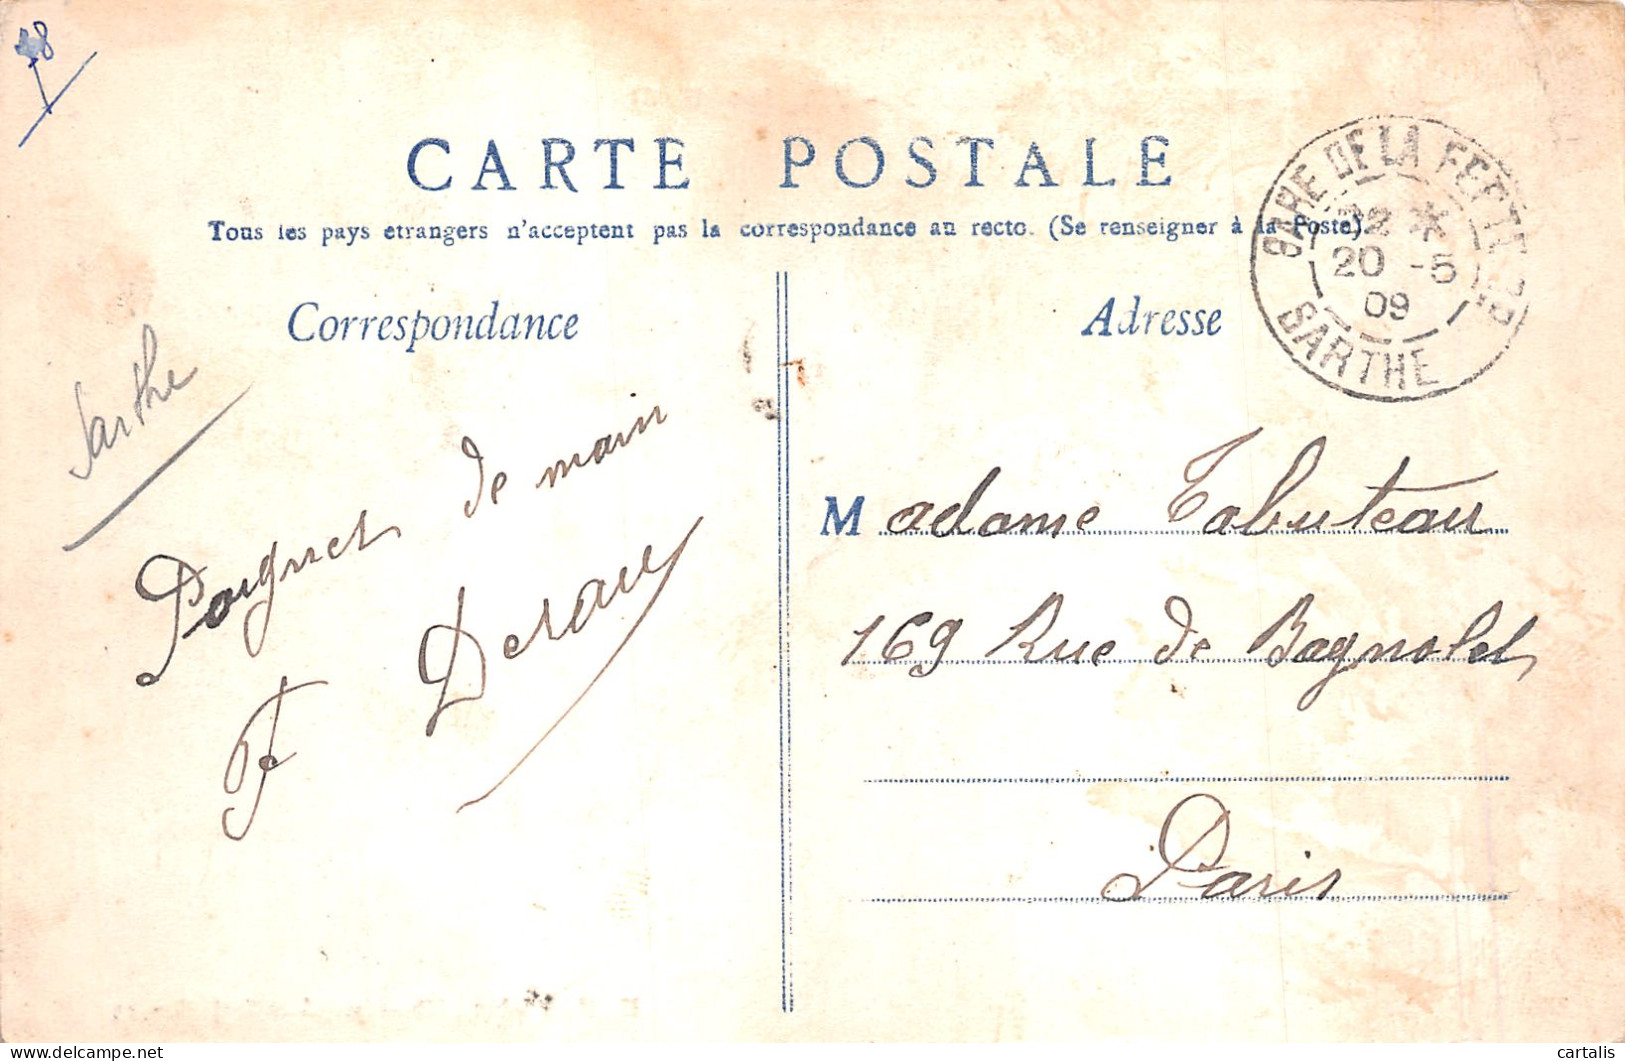 48
CARTE POSTALE
Tous les pays etrangers n'acceptent pas la correspondance au recto. (Se renseigner à la Poste).
GARE DE LA FERTE
22 *
20 -5
09
SARTHE
Correspondance
Adresse
Sarthe
Poignet de main
F
Madame Tabuteau
169 Rue de Bagnolet
Paris
cartalis